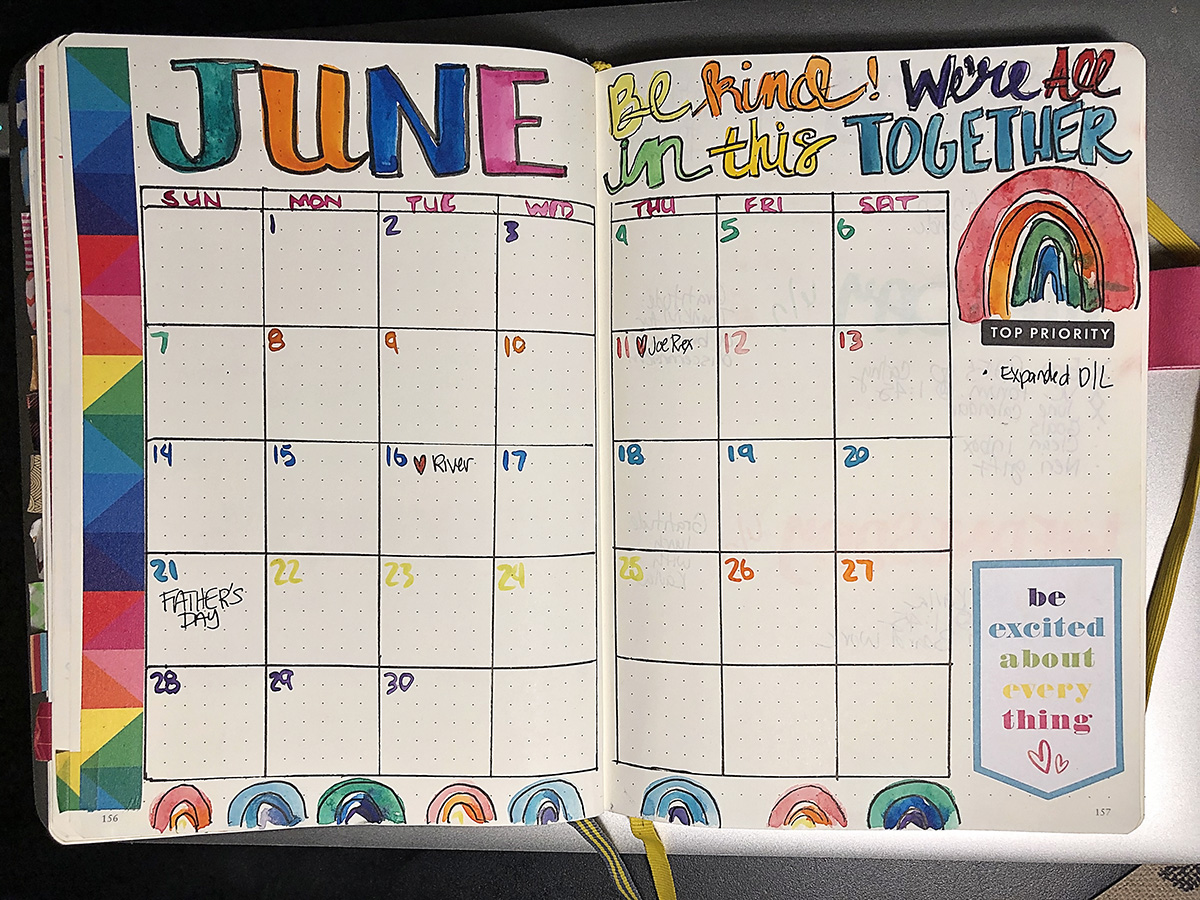 JUNE
Be kind! We're All
in this TOGETHER
SUN MON TUE WED THU FRI SAT
1 2 3 4 5 6
7 8 9 10 11 Joe Rex 12 13
14 15 16 River 17 18 19 20
21 22 23 24 25 26 27
FATHER'S
DAY
28 29 30
TOP PRIORITY
· Expanded D/L
be
excited
about
every
thing
156
157